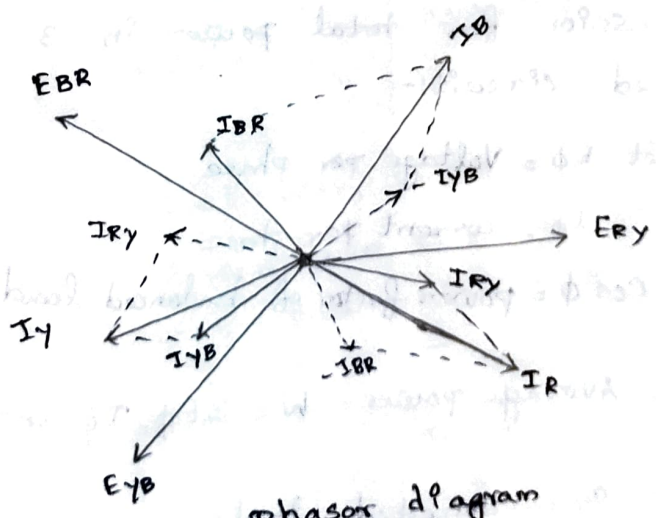 IB
EBR
IBR
-IYB
IRY
ERY
IRY
IY
IYB
-IBR
IR
EYB
phasor diagram